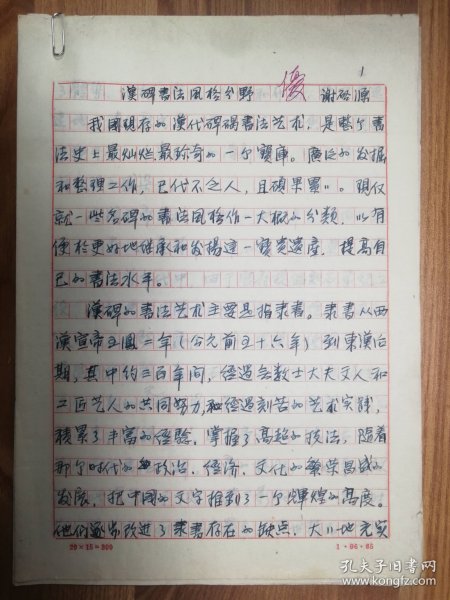 1
漢碑書法風格分野 優 謝啓源
我國現存的漢代碑碣書法艺术，是整个書
法史上最灿烂最珍奇的一个寶庫。廣泛的发掘
和整理工作，已代不乏人，且碩果累〃。現仅
就一些名碑的書法風格作一大概的分類，以有
便於更好地继承和发揚這一寶貴遺産，提高自
己的書法水平。
漢碑的書法艺术主要是指隶書。隶書从西
漢宣帝五鳳二年（公元前五十六年）到東漢后
期，其中约三百年间，经過无数士大夫文人和
工匠艺人的共同努力，和经過刻苦的艺术实践，
積累了丰富的经验，掌握了高超的技法，隨着
那个时代的政治、经济、文化的繁荣昌盛的
发展，把中國的文字推到了一个輝煌的高度。
他们逐步改進了隶書存在的缺点，大〃地充实
20×15=300
1·86·85
孔夫子旧書网